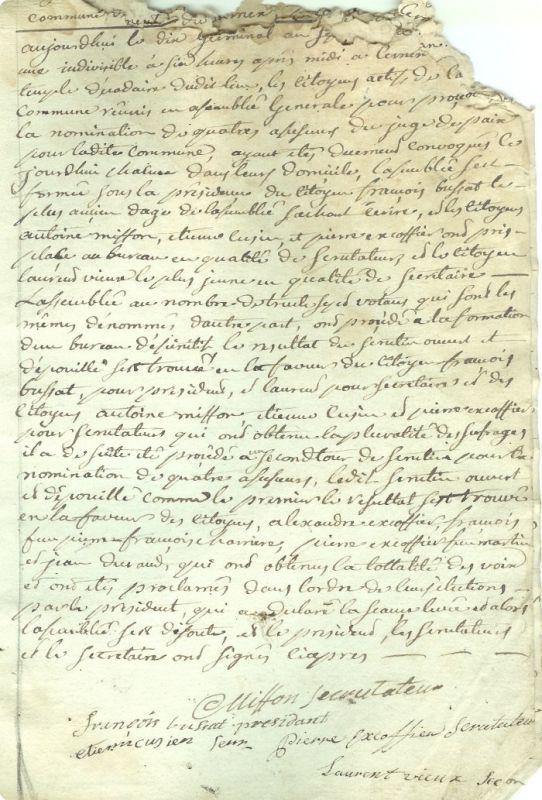 commune
aujourdhui le dix Germinal an
une indivisible a six heures après midi a
temple decadaire dudit lieu, les citoyens actifs de la
Commune réunis en assemblée Generale pour
la nomination de quatres asseseurs du juge de paix
pour ladite commune, ayant étés duement convoqués le
jourdhui chacun dans leurs domicile, lassemblée sest
formée sous la présidence du citoyen françois bussat le
plus ancien dage de lassemblée sachant écrire, et les citoyens
antoine miffon, etienne cusin, et pierre excoffier ont pris
place au bureau en qualité de scrutateurs et le citoyen
laurend vieux le plus jeune en qualité de secretaire
Lassemblée au nombre de trente sept votans qui sont les
mêmes dénommés dautre part, ont procédé a la formation
dun bureau définitif le resultat du scrutin ouvert et
dépouillé sest trouvé en la faveur du citoyen françois
bussat, pour président, et laurend pour secretaire et des
citoyens antoine miffon etienne cusin et pierre excoffier
pour scrutateurs qui ont obtenu la pluralité des sufrages
il a de suite été procédé a un second tour de scrutin pour la
nomination de quatre asseseurs, ledit scrutin ouvert
et dépouillé comme le premier le résultat sest trouvé
en la faveur des citoyens, alexandre excoffier, françois
feu pierre françois charriere, pierre excoffier feu martin
et jean durand, qui ont obtenus la tottalité des voix
et ont étés proclamés dans lordre de leurs élections
par le président, qui a déclaré la seance levée et alors
lassemblée sest disoute, et le président, les scrutateurs
et le secretaire ont signés ciaprès
Miffon secrutateur
françois bussat presidant
etienne cusien scrur pierre excoffier scrutateur
Laurent vieux secre